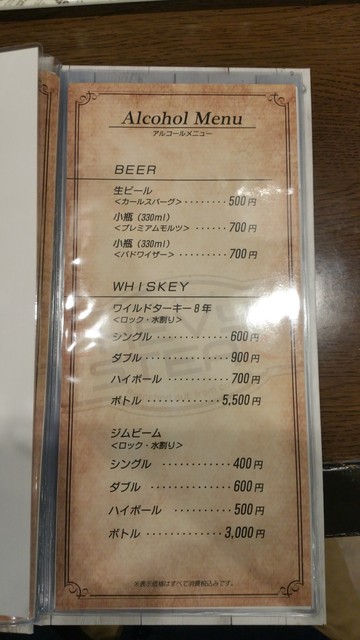 Alcohol Menu
アルコールメニュー
BEER
生ビール
<カールスバーグ>････････500円
小瓶 (330ml)
<プレミアムモルツ>･･････700円
小瓶 (330ml)
<バドワイザー>････････700円
WHISKEY
ワイルドターキー8年
<ロック・水割り>
シングル････････････600円
ダブル･････････････900円
ハイボール･･････････700円
ボトル･･･････････5,500円
ジムビーム
<ロック・水割り>
シングル ････････････400円
ダブル ･････････････600円
ハイボール ･･････････500円
ボトル ････････････3,000円
※表示価格はすべて消費税込みです。